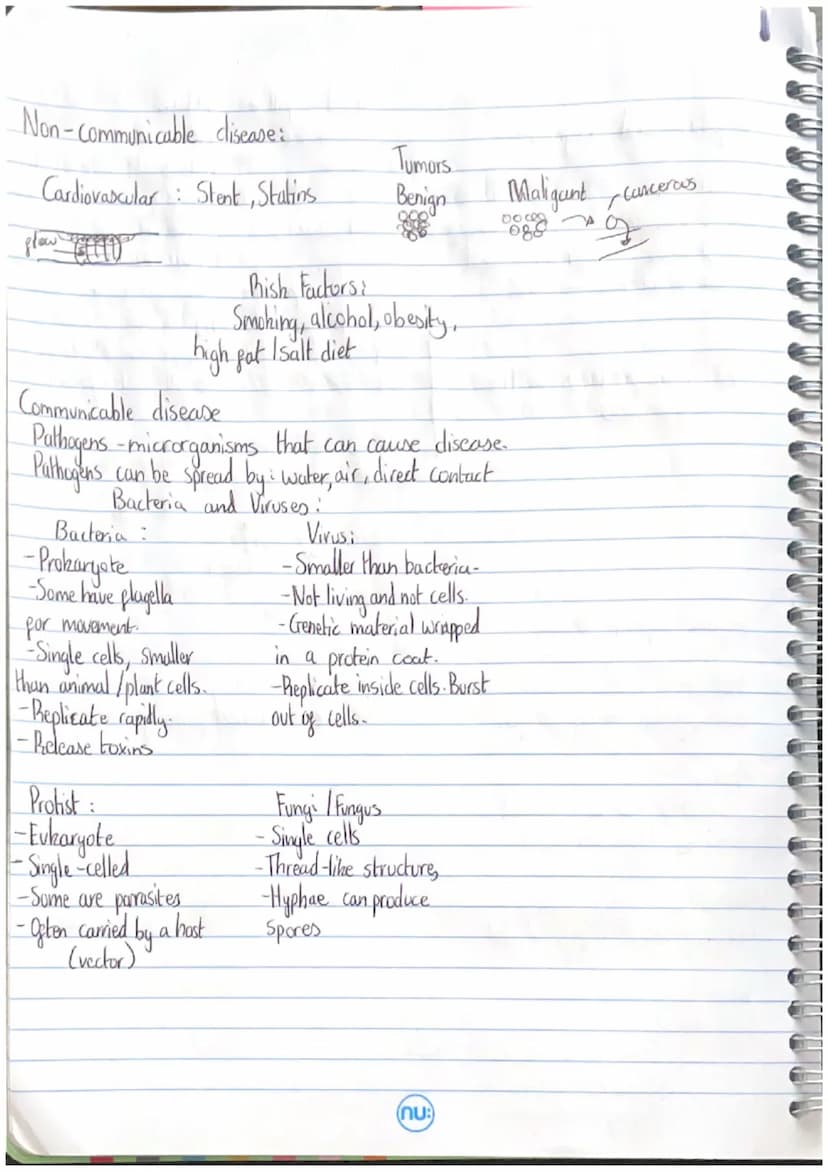 Non-communicable disease:
Tumors
Cardiovascular : Stent, Statins
Benign
Maligant
cancerous
flow
Risk Factors:
Smoking, alcohol, obesity,
high fat / salt diet
Communicable disease
Pathogens - microrganisms that can cause disease.
Pathogens can be spread by: water, air, direct contact
Bacteria and Viruses:
Bacteria :
- Prokaryote
- Some have flagella
for movement.
- Single cells, smaller
than animal / plant cells.
- Replicate rapidly.
- Release toxins
Virus:
- Smaller than bacteria-
- Not living and not cells.
- Genetic material wrapped
in a protein coat.
- Replicate inside cells. Burst
out of cells.
Protist :
- Eukaryote
- Single-celled
- Some are parasites
- Often carried by a host
(vector)
Fungi / Fungus
- Single cells
- Thread-like structure,
- Hyphae can produce
spores
nu: